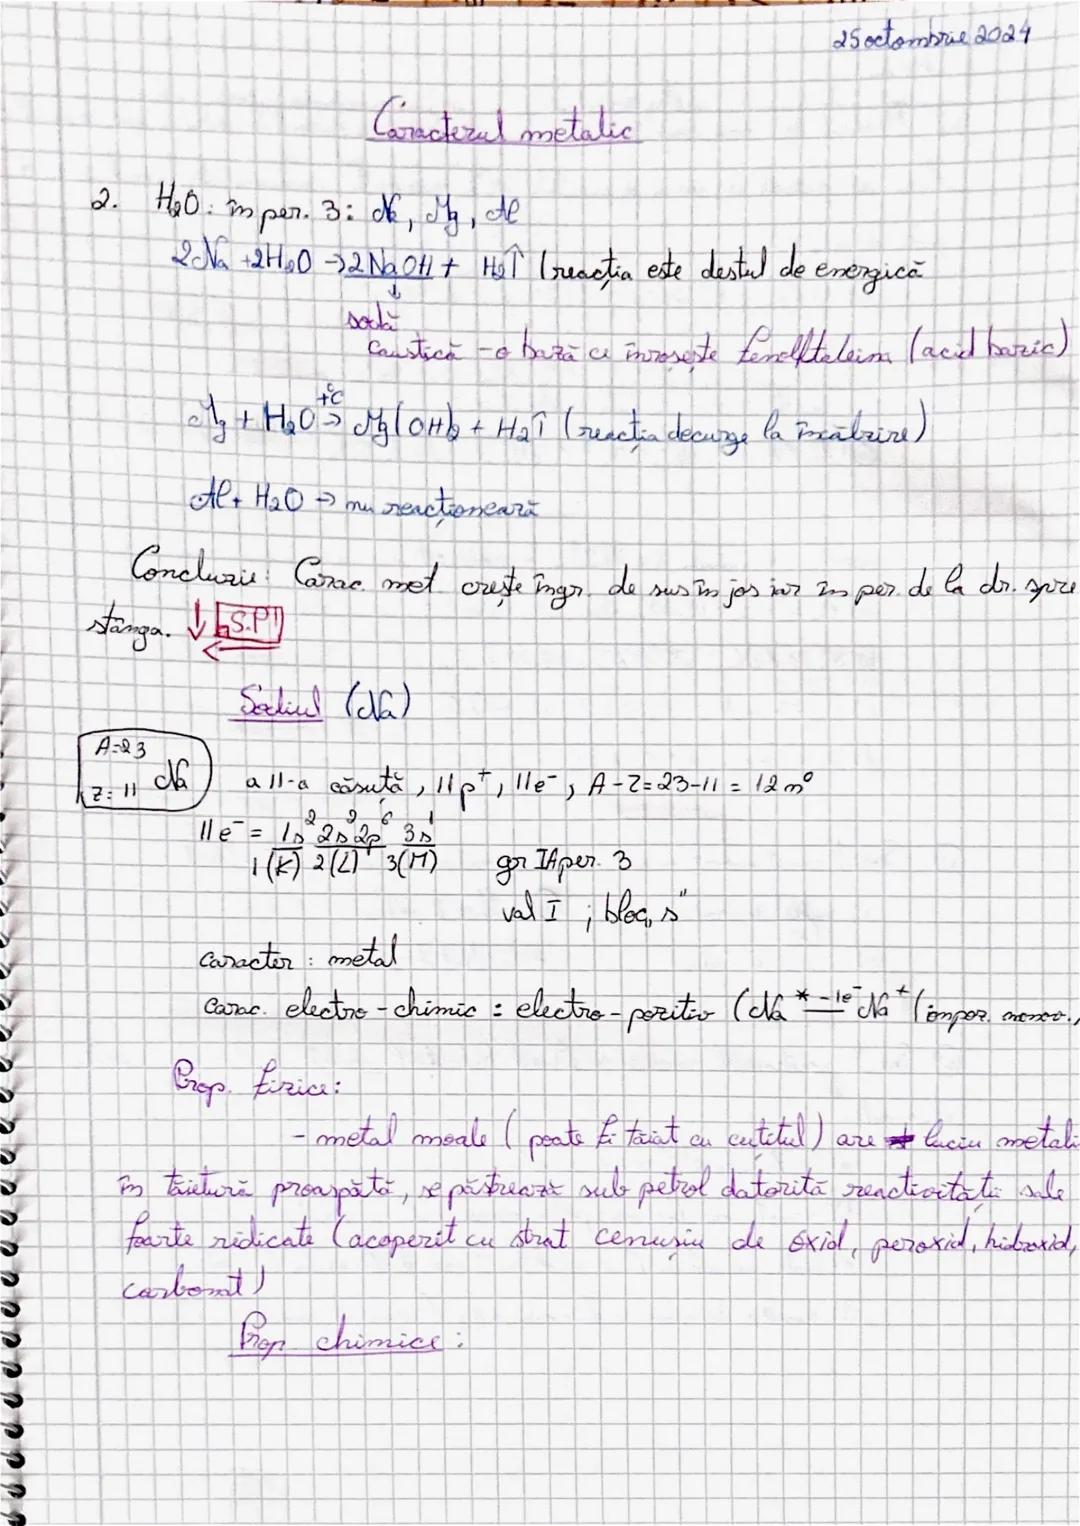 25 octombrie 2024
Caracterul metalic
2. H₂O: în per. 3: Na, Mg, Al
2Na + 2H₂O → 2NaOH + H₂↑ (reacția este destul de energică
↓
sodă
caustică - o bază ce înroșește fenolftaleina (acid bazic)
Mg + H₂O →(+°C) Mg(OH)₂ + H₂↑ (reacția decurge la încălzire)
Al + H₂O → nu reacționează
Concluzie: Carac. met. crește în gr. de sus în jos iar în per. de la dr. spre
stânga. ↓ S.P ←
Sodiul (Na)
A=23
Z=11 Na a 11-a căsuță, 11p⁺, 11e⁻, A-Z=23-11=12n⁰
11e⁻ = 1s² 2s² 2p⁶ 3s¹
1(K) 2(L) 3(M) gr IA per. 3
val I ; bloc „s"
caracter : metal
carac. electro-chimic : electro-pozitiv (Na* —-1e⁻ Na⁺ (
Prop. fizice:
- metal moale (poate fi tăiat cu cuțitul) are luciu metali
în tăietură proaspătă, se păstrează sub petrol datorită reactivității sale
foarte ridicate (acoperit cu strat cenușiu de oxid, peroxid, hidroxid,
carbonat)
Prop. chimice :